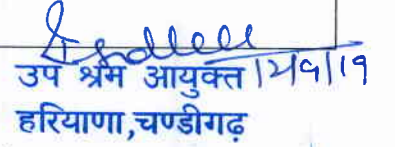 उप श्रम आयुक्त 12/9/19
हरियाणा,चण्डीगढ़